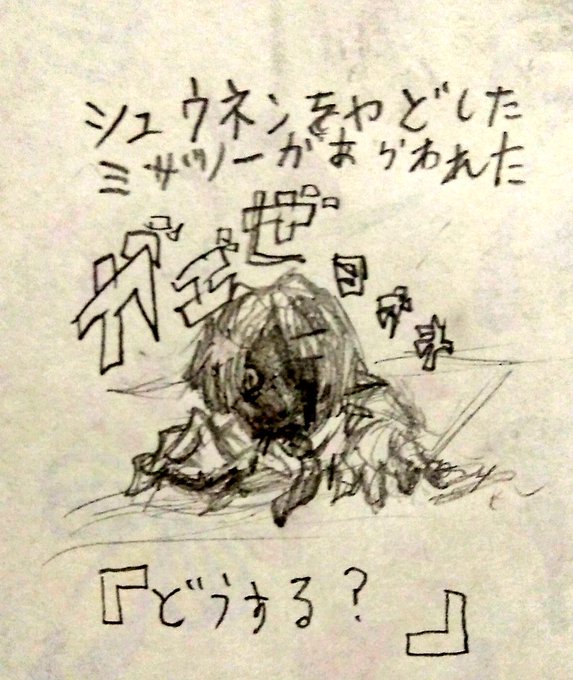 シュウネンをやどした
ミザリーがあらわれた
『どうする?』